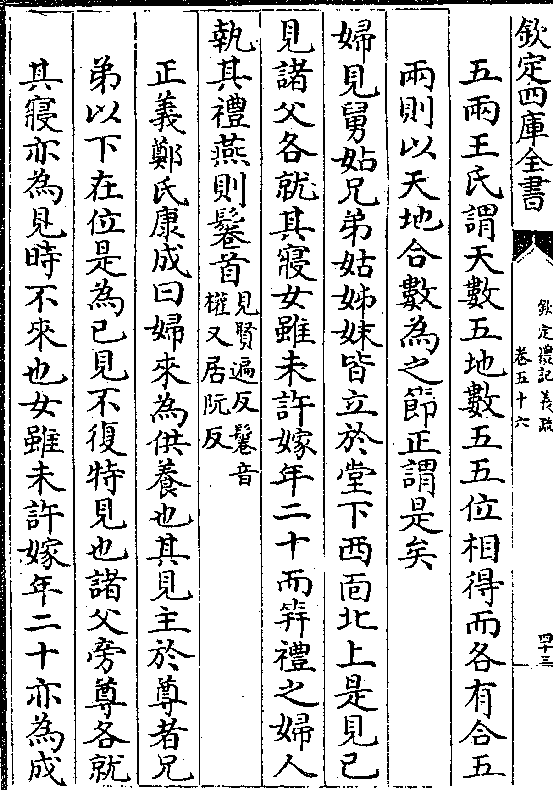 欽定四庫全書
欽定禮記義疏
卷五十六
四十三
五兩王氏謂天數五地數五五位相得而各有合五
兩則以天地合數為之節正謂是矣
婦見舅姑兄弟姑姊妹皆立於堂下西面北上是見已
見諸父各就其寢女雖未許嫁年二十而笄禮之婦人
執其禮燕則鬈首見賢遍反鬈音權又居阮反
正義鄭氏康成曰婦來為供養也其見主於尊者兄
弟以下在位是為已見不復特見也諸父旁尊各就
其寢亦為見時不來也女雖未許嫁年二十亦為成